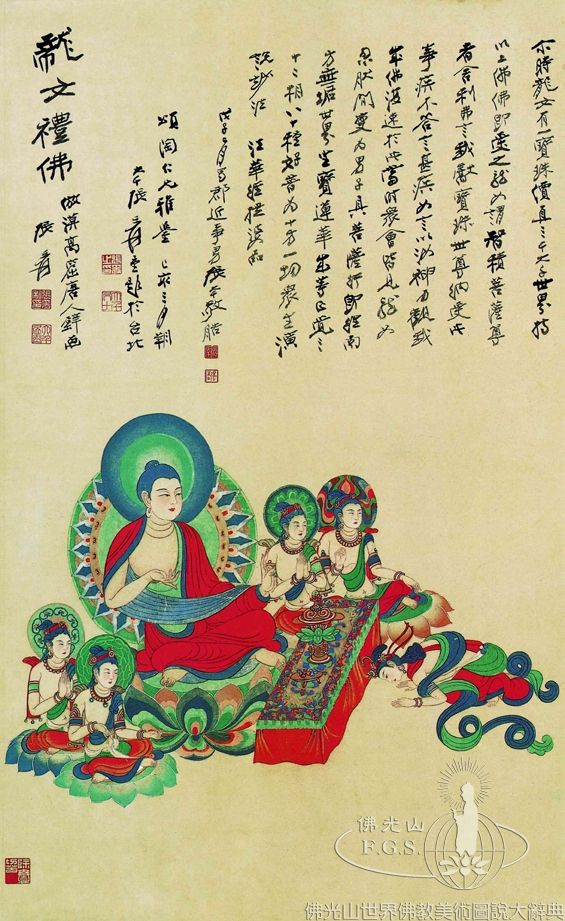 尒時龍女有一寶珠價直三千大千世界持
以上佛佛即受之龍女謂智積菩薩尊
者舍利弗言我獻寶珠世尊納受是
事疾不答言甚疾女言以汝神力觀我
成佛復速於此當時眾會皆見龍女
忽然間變為男子具菩薩行即往南
方無垢世界坐寶蓮華成等正覺三
十二相八十種好普為十方一切眾生演
說妙法 法華經提婆品
戊子三月蜀郡近事男張大千敬
仁兄雅鑒 三月朔
大千張爰重題於台北
龍女禮佛
漠高窟唐人壁画
張爰
佛光山
F.G.S.
佛光山世界佛教美術圖說大辭典